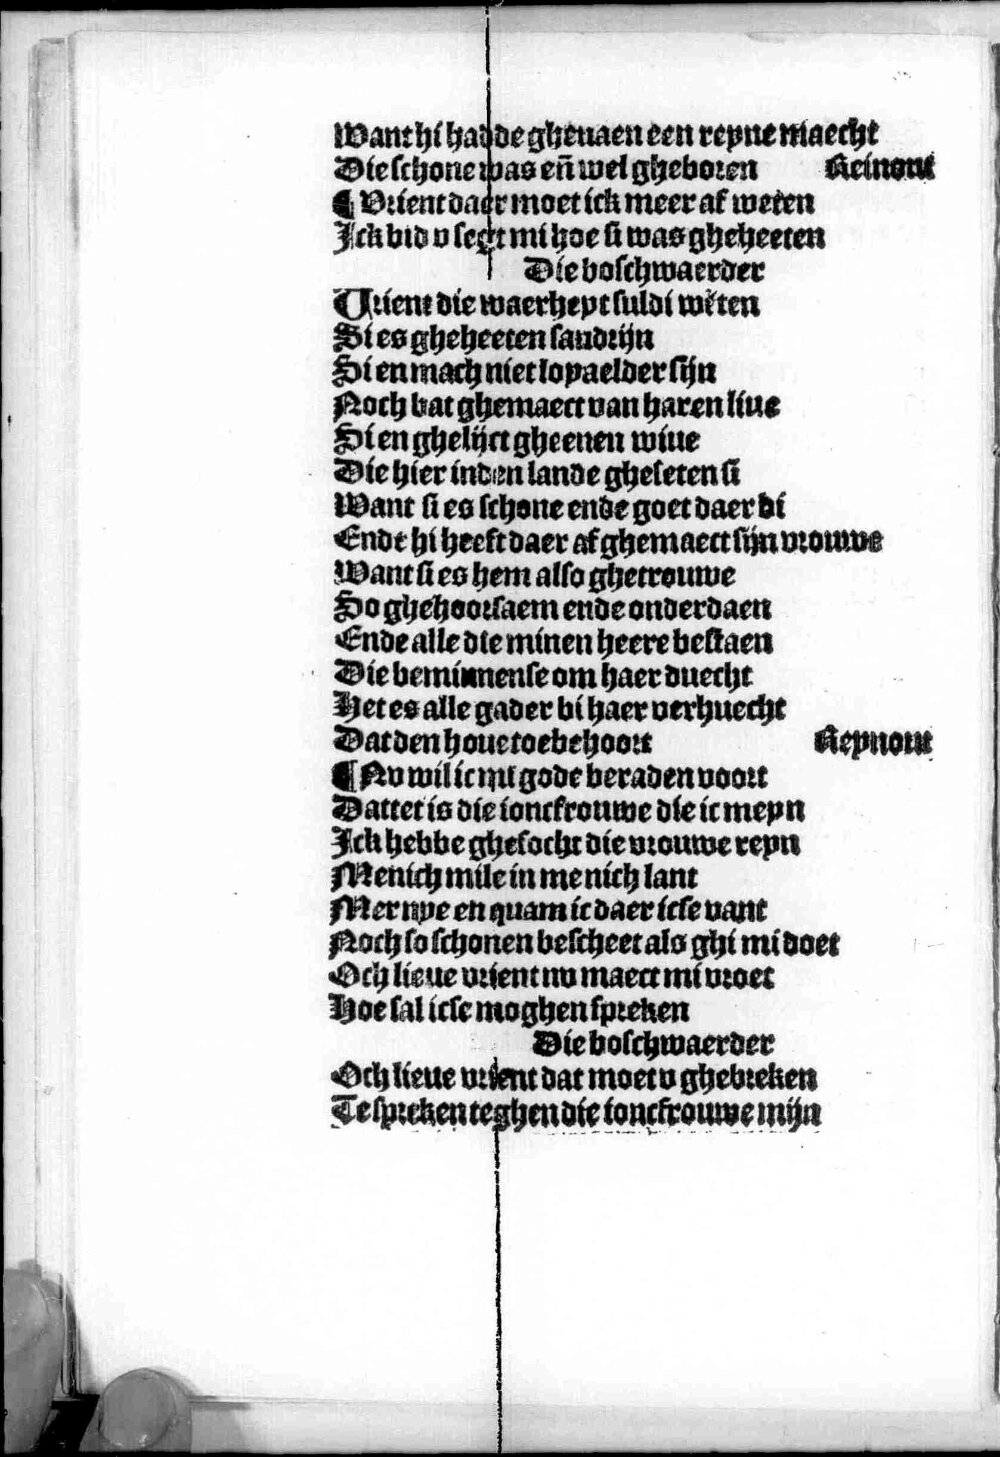 Want hi hadde gheuaen een reyne maecht
Die schone was eñ wel gheboren Reinout
¶ Vrient daer moet ick meer af weten
Ick bid v segt mi hoe si was gheheeten
Die boschwaerder
Vrient die waerheyt suldi weten
Si es gheheeten sandrijn
Si en mach niet lopaelder sijn
Noch bat ghemaect van haren liue
Si en ghelijct gheenen wiue
Die hier inden lande gheseten si
Want si es schone ende goet daer bi
Ende hi heeft daer af ghemaect sijn vrouwe
Want si es hem also ghetrouwe
So ghehoorsaem ende onderdaen
Ende alle die minen heere bestaen
Die beminnense om haer duecht
Het es alle gader bi haer verhuecht
Dat den houe toebehoort Reynout
¶ Nv wil ic mi gode beraden voort
Dattet is die ioncfrouwe die ic meyn
Ick hebbe ghesocht die vrouwe reyn
Menich mile in menich lant
Mer nye en quam ic daer icse vant
Noch so schonen bescheet als ghi mi doet
Och lieue vrient nv maect mi vroet
Hoe sal icse moghen spreken
Die boschwaerder
Och lieue vrient dat moet v ghebreken
Te spreken teghen die ioncfrouwe mijn